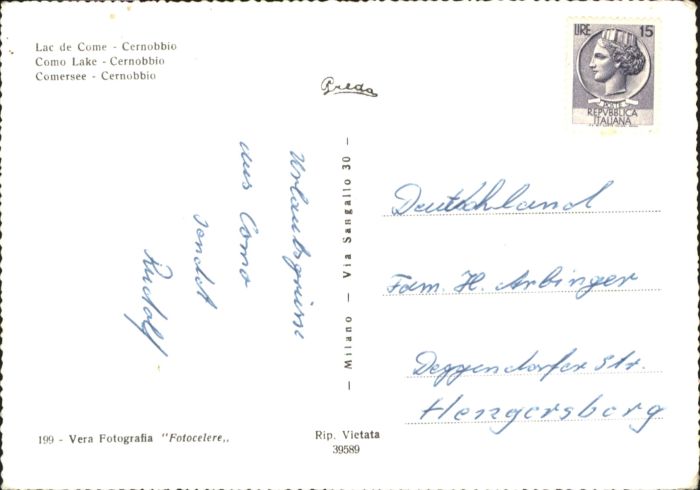 Lac de Come - Cernobbio
Como Lake - Cernobbio
Comersee - Cernobbio
Preda
LIRE 15
POSTE
REPVBBLICA
ITALIANA
Urlaubsgrüsse
aus Como
sendet
Rudolf
— Milano — Via Sangallo 30 —
Deutschland
Fam. H. Arbinger
Deggendorfer Str.
Hengersberg
199 - Vera Fotografia "Fotocelere,,
Rip. Vietata
39589